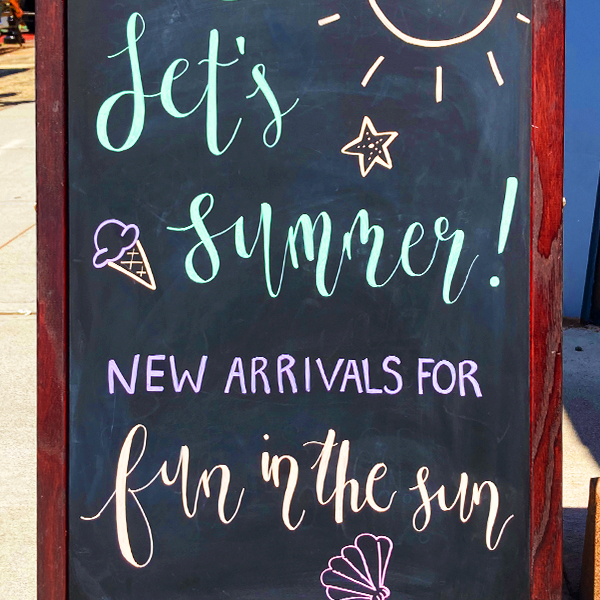 Let's
summer!
NEW ARRIVALS FOR
fun in the sun